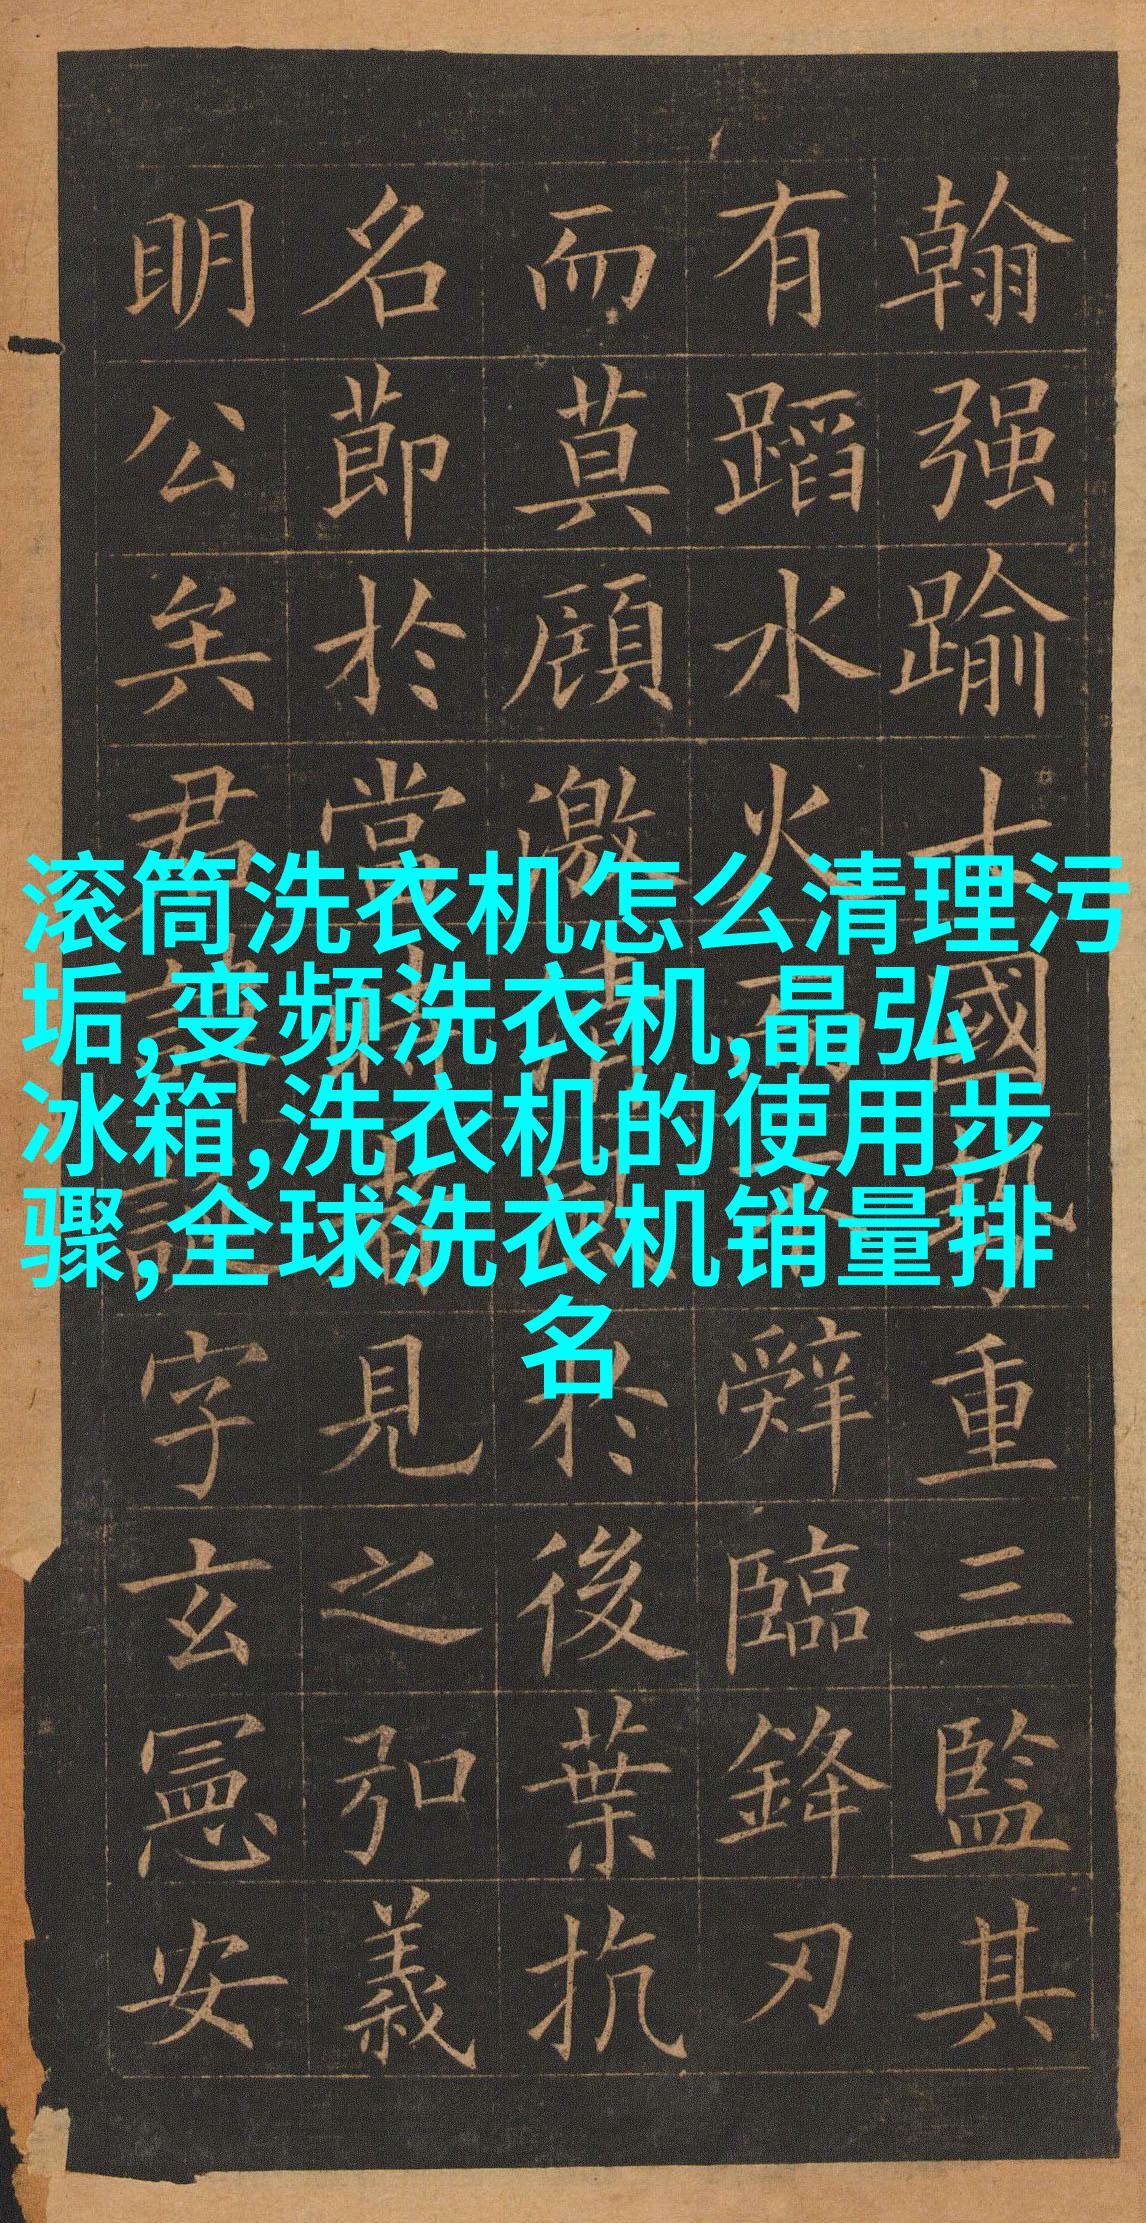 滚筒洗衣机怎么清理污
垢,变频洗衣机,晶弘
冰箱,洗衣机的使用步
骤,全球洗衣机销量排
名
翰强踰國重三監其
有蹈水火而不辭臨鋒刃
而莫顧激清風於後葉抗
名節於當時者見之弘義
明公矣君諱誕字玄憲安